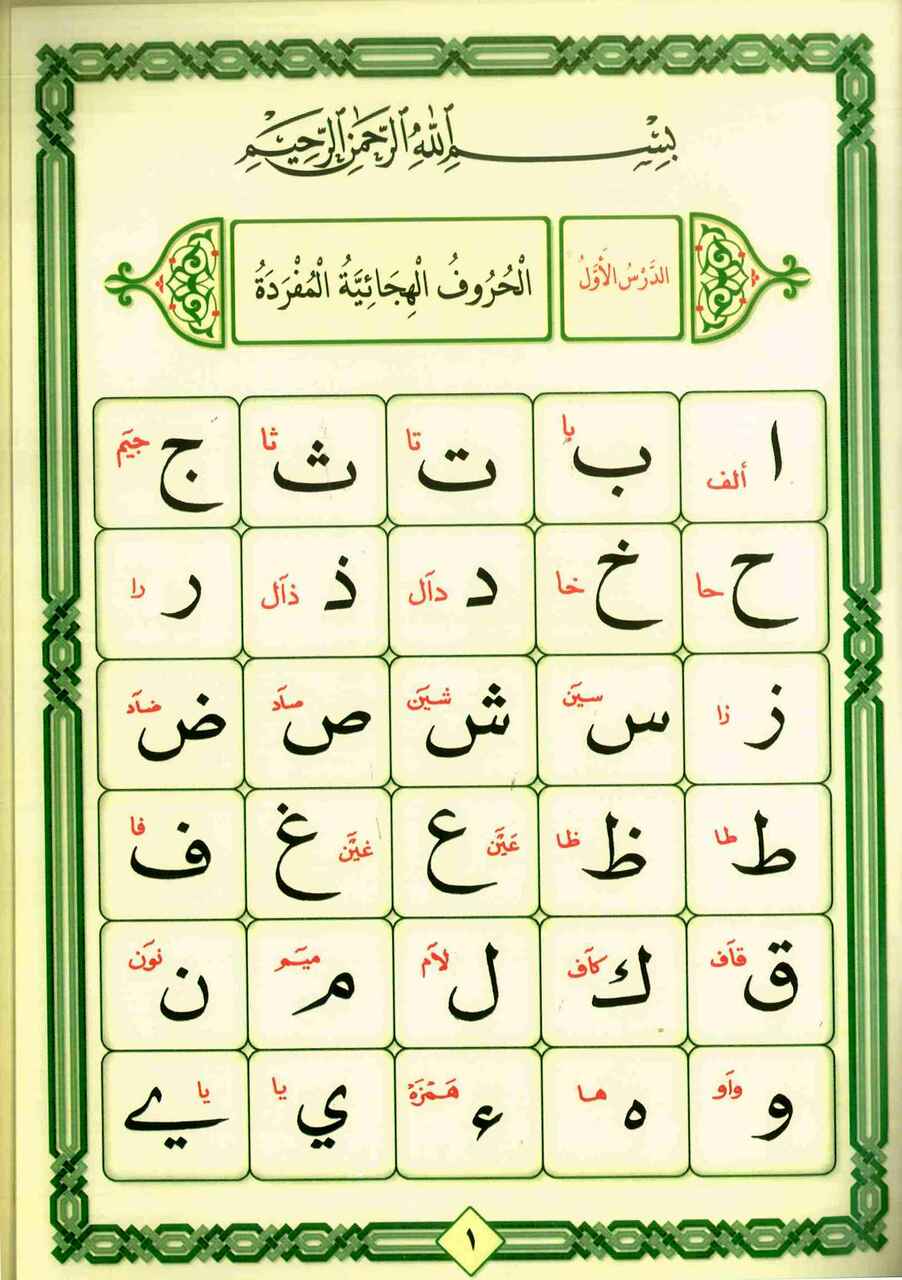 بِسْمِ اللهِ الرَّحْمٰنِ الرَّحِيْمِ
الدَّرْسُ الْأَوَّلُ
الْحُرُوفُ الْهِجَائِيَّةُ الْمُفْرَدَةُ
ا ألف ب با ت تا ث ثا ج جيم
ح حا خ خا د دآل ذ ذآل ر را
ز زا س سين ش شين ص صآد ض ضآد
ط طا ظ ظا ع عين غ غين ف فا
ق قآف ك كآف ل لآم م ميم ن نون
و وآو ه ها ء همزه ي يا ے يا
١